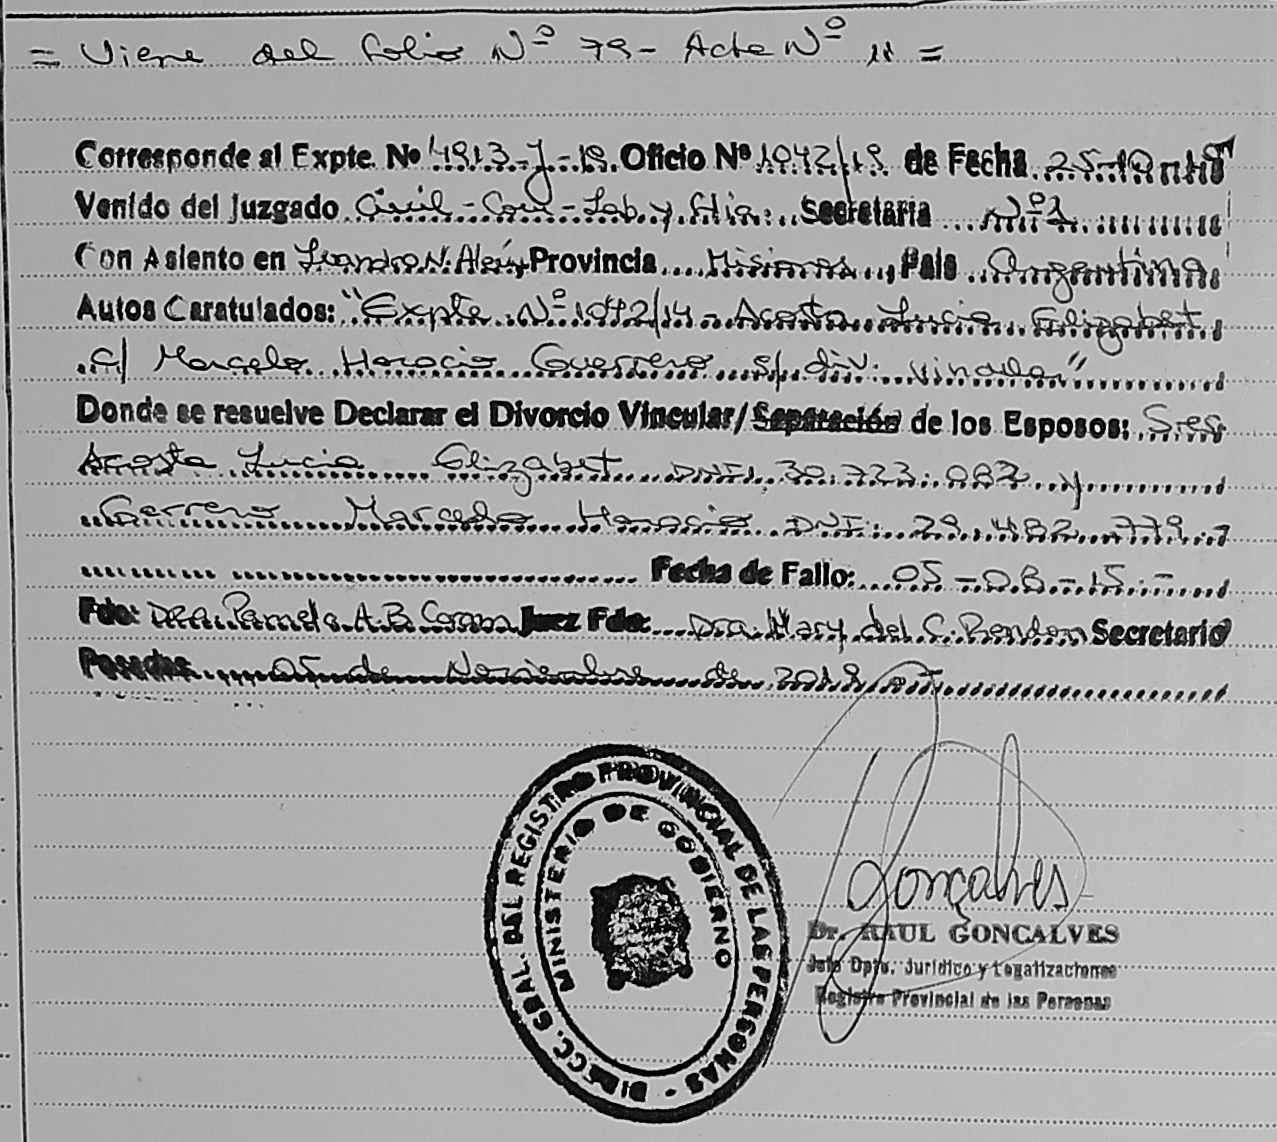 = Viene del folio Nº 79 - Acta Nº 11 =
Corresponde al Expte. Nº 4913-J-19. Oficio Nº 1042/19 de Fecha 25-10-
Venido del Juzgado Civil - Com - Lab. y flia: Secretaria Nº 1
Con Asiento en Leandro N. Alem, Provincia Misiones, Pais Argentina
Autos Caratulados: "Expte Nº 1042/14 - Acosta Lucia Elizabet
c/ Marcelo Horacio Guerrero s/ div: vincular"
Donde se resuelve Declarar el Divorcio Vincular/Separación de los Esposos: Sres
Acosta Lucia Elizabet DNI. 30.723.083 y
Gerreno Marcelo Horacio DNI: 29.482.779.-
Fecha de Fallo: 05-08-15.-
Fdo: Dra. Pamela A.B. Juez Fdo: Dra. Mary del C. Secretario
Posadas 05 de Noviembre de 2019
DIRECC. GRAL. DEL REGISTRO PROVINCIAL DE LAS PERSONAS -
MINISTERIO DE GOBIERNO
Gonçalves
Dr. RAUL GONCALVES
Jefe Dpto. Jurídico y Legalizaciones
Registro Provincial de las Personas